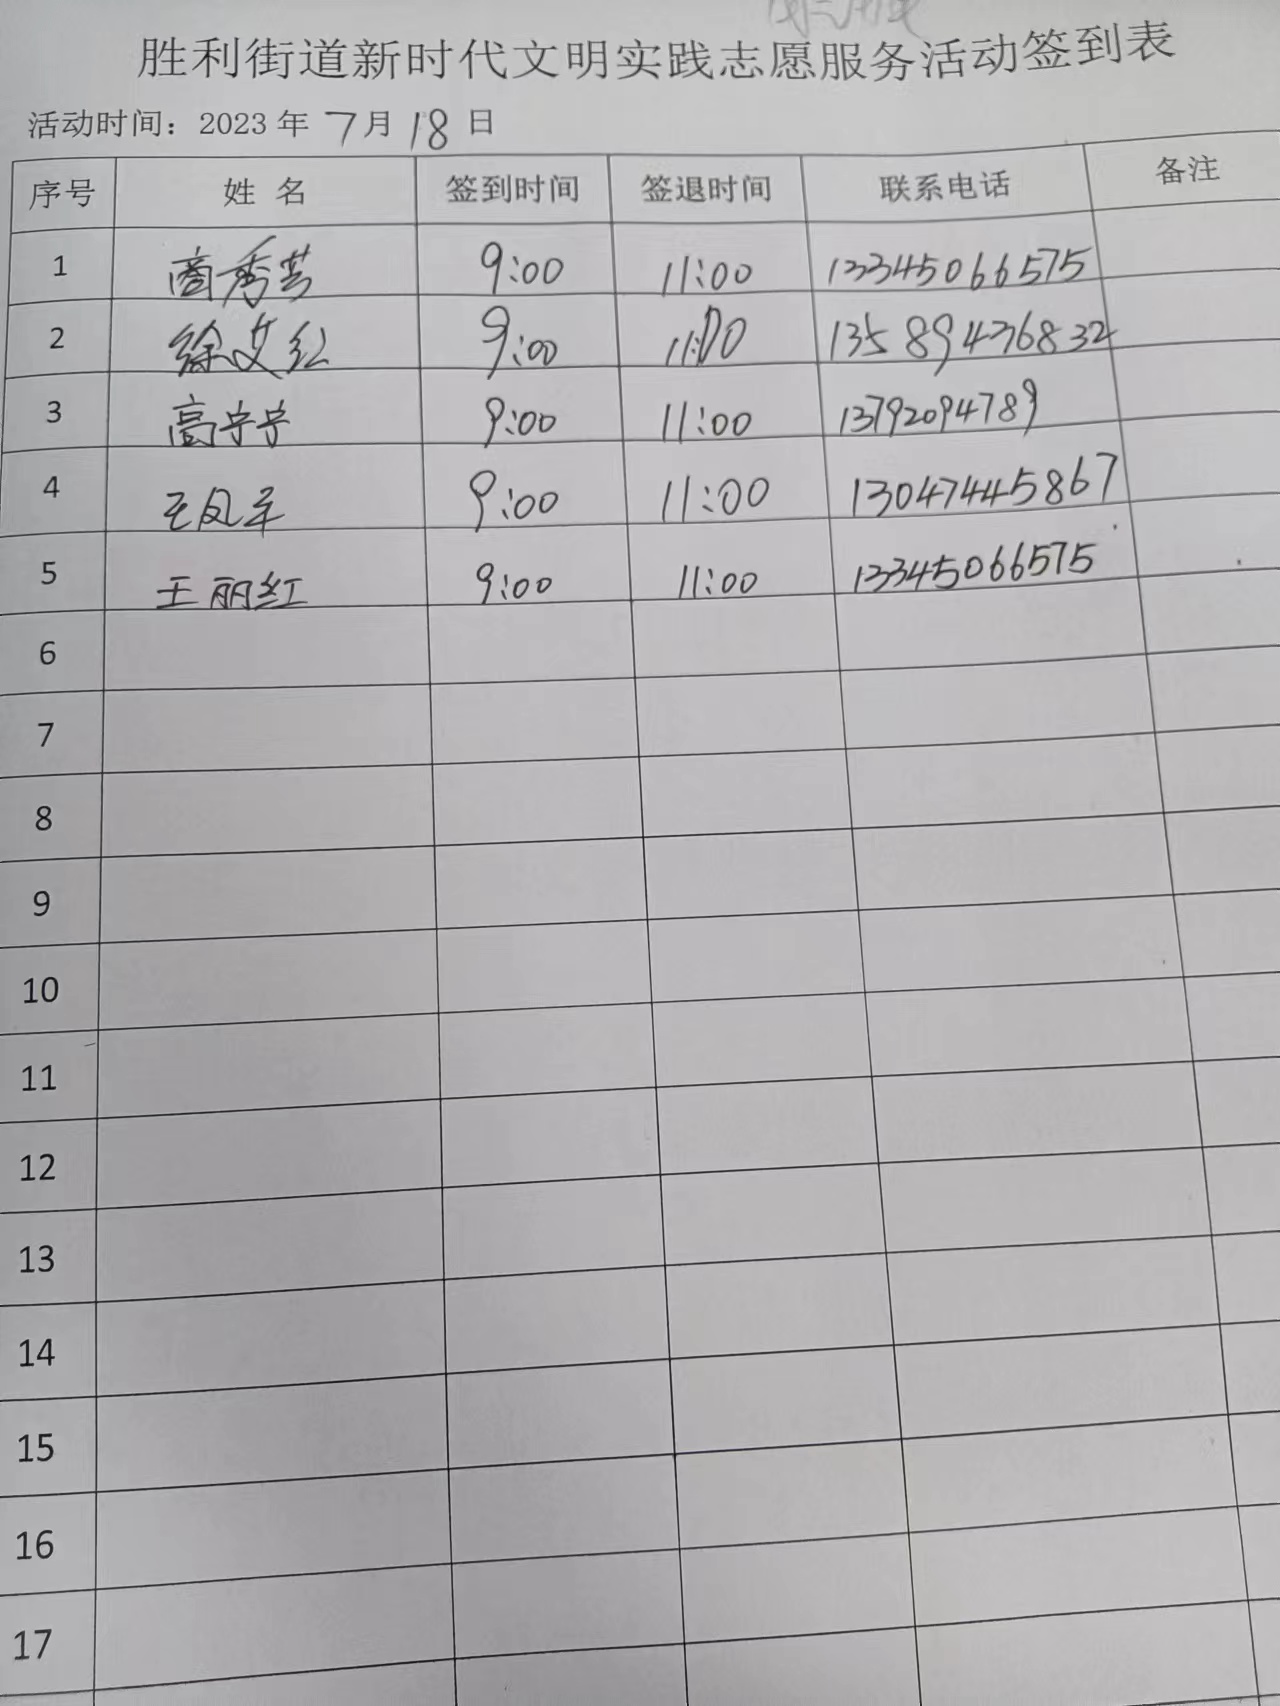 胜利街道新时代文明实践志愿服务活动签到表
活动时间：2023 年 7 月 18 日
序号 姓 名 签到时间 签退时间 联系电话 备注
1 商秀芸 9:00 11:00 13345066575
2 徐文红 9:00 11:00 13589476832
3 高宁宁 9:00 11:00 13792094789
4 王凤军 9:00 11:00 13047445867
5 王丽红 9:00 11:00 13345066575
6
7
8
9
10
11
12
13
14
15
16
17